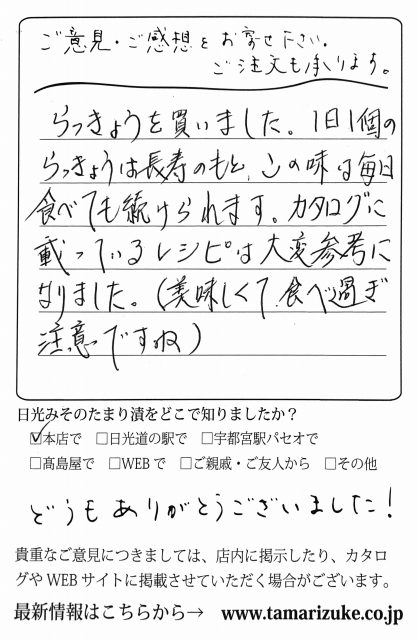 ご意見・ご感想をお寄せ下さい。
ご注文も承ります。
らっきょうを買いました。1日1個の
らっきょうは長寿のもと、この味は毎日
食べても続けられます。カタログに
載っているレシピは大変参考に
なりました。(美味しくて食べ過ぎ
注意ですね)
日光みそのたまり漬をどこで知りましたか?
☑本店で □日光道の駅で □宇都宮駅パセオで
□髙島屋で □WEBで □ご親戚・ご友人から □その他
どうもありがとうございました!
貴重なご意見につきましては、店内に掲示したり、カタロ
グやWEBサイトに掲載させていただく場合がございます。
最新情報はこちらから→ www.tamarizuke.co.jp